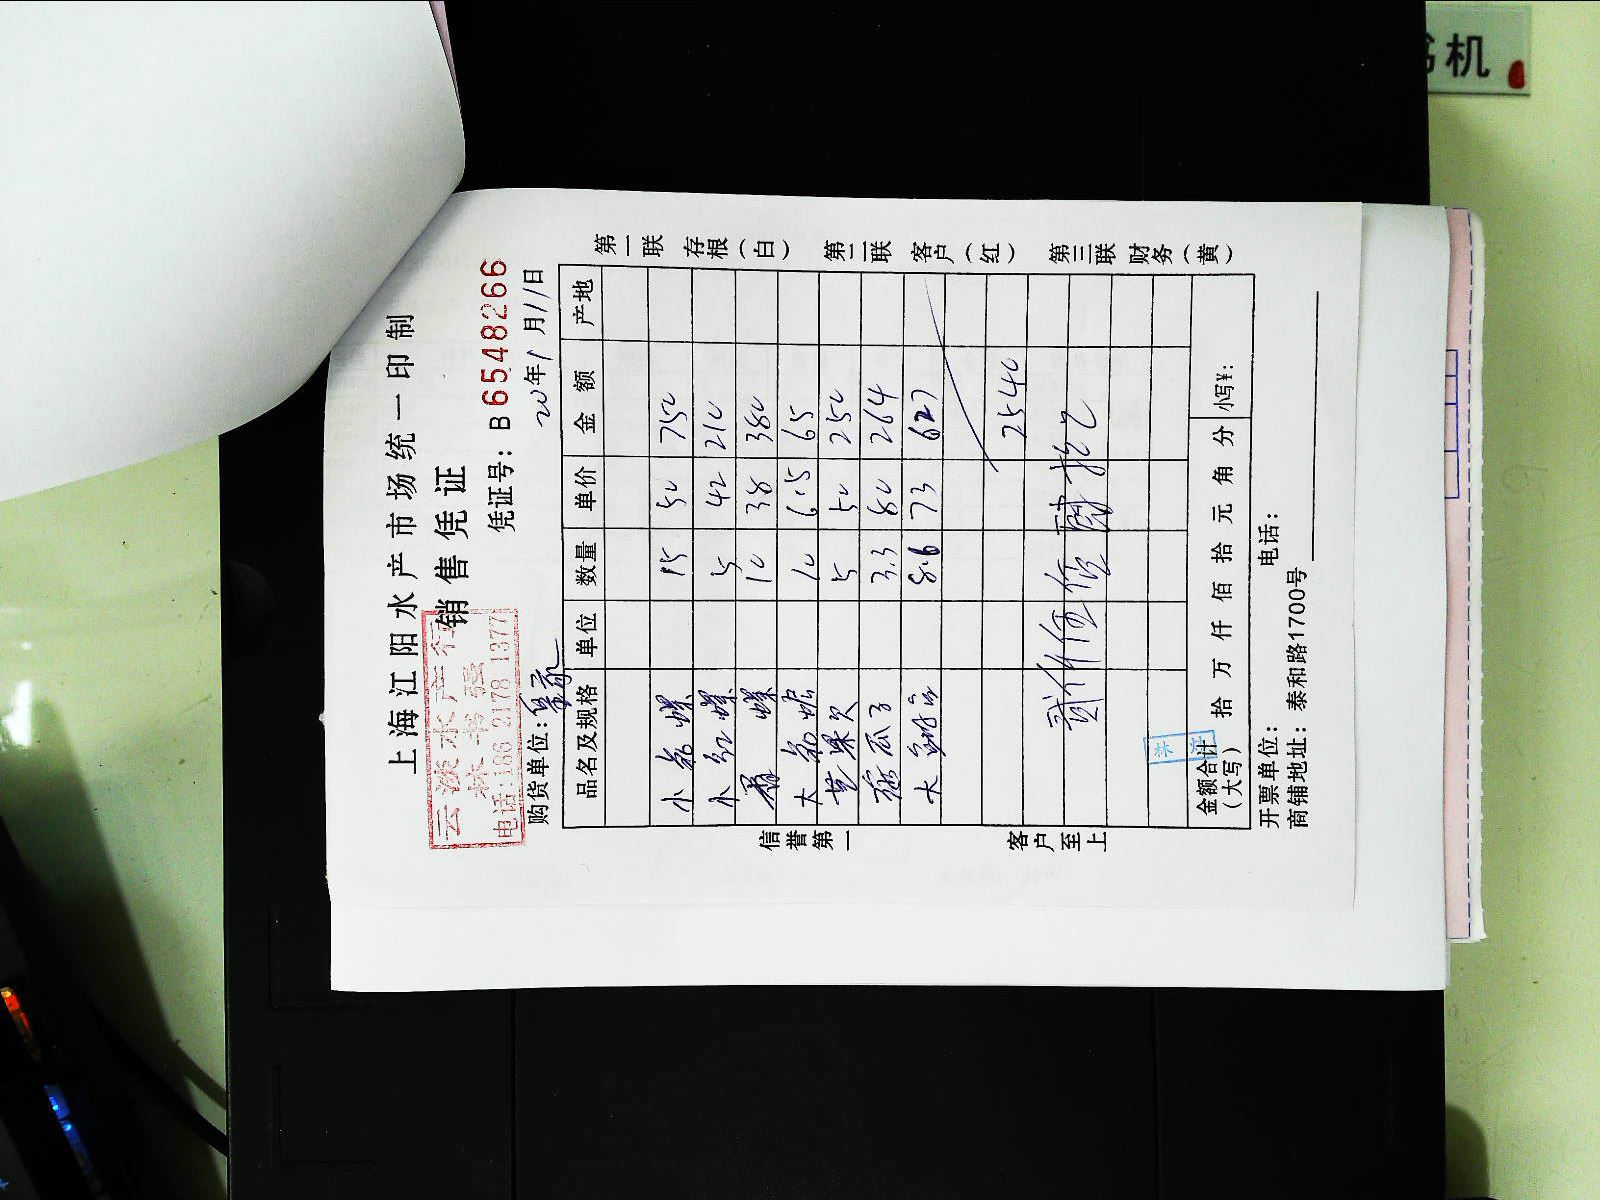 书机
上海江阳水产市场统一印制
销售凭证
云淡水产行
林书强
电话:186 2178 1377
凭证号：B6548266
购货单位:
20年1月11日
品名及规格 单位 数量 单价 金额 产地
小 螺 15 50 750
小红螺 5 42 210
螺 10 38 380
大 10 6.5 65
芒果贝 5 50 250
瓜子 3.3 80 264
大 8.6 73 627
2540
贰仟伍佰肆拾元
金额合计（大写） 拾 万 仟 佰 拾 元 角 分 小写¥：
开票单位： 电话：
商铺地址：泰和路1700号
第一联 存根（白） 第二联 客户（红） 第三联 财务（黄）
信誉第一 客户至上